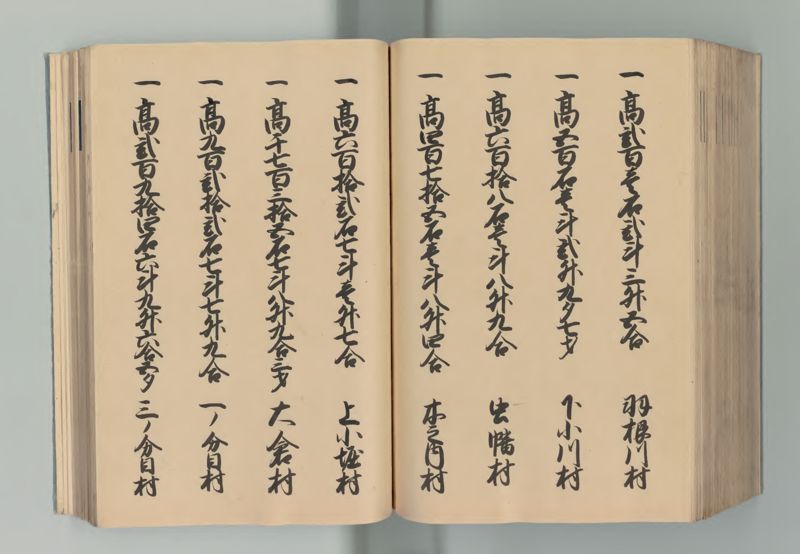 一 高弐百壱石弐斗三升五合 羽根川村
一 高五百石壱斗弐升九夕七才 下小川村
一 高六百拾八石壱斗八升九合 虫幡村
一 高四百七拾五石壱斗八升四合 木之内村
一 高六百拾弐石七斗壱升七合 上小堀村
一 高千七百三拾五石七斗八升九合三才 大倉村
一 高九百弐拾弐石七斗七升九合 一ノ分目村
一 高弐百九拾四石六斗九升六合五夕 三ノ分目村